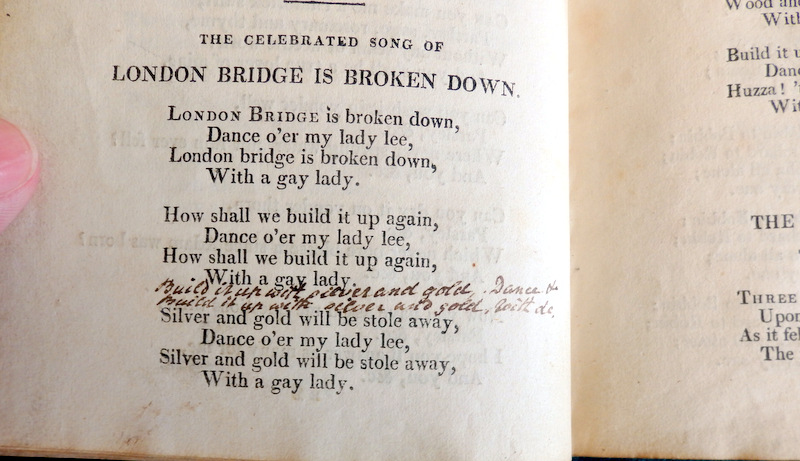 THE CELEBRATED SONG OF
LONDON BRIDGE IS BROKEN DOWN.
LONDON BRIDGE is broken down,
Dance o'er my lady lee,
London bridge is broken down,
With a gay lady.
How shall we build it up again,
Dance o'er my lady lee,
How shall we build it up again,
With a gay lady.
Build it up with silver and gold, Dance &
Build it up with silver and gold, With &c.
Silver and gold will be stole away,
Dance o'er my lady lee,
Silver and gold will be stole away,
With a gay lady.
Wood and
With
Build it u
Danc
Huzza! 't
Wit
THE
THREE
Upon
As it fel
The